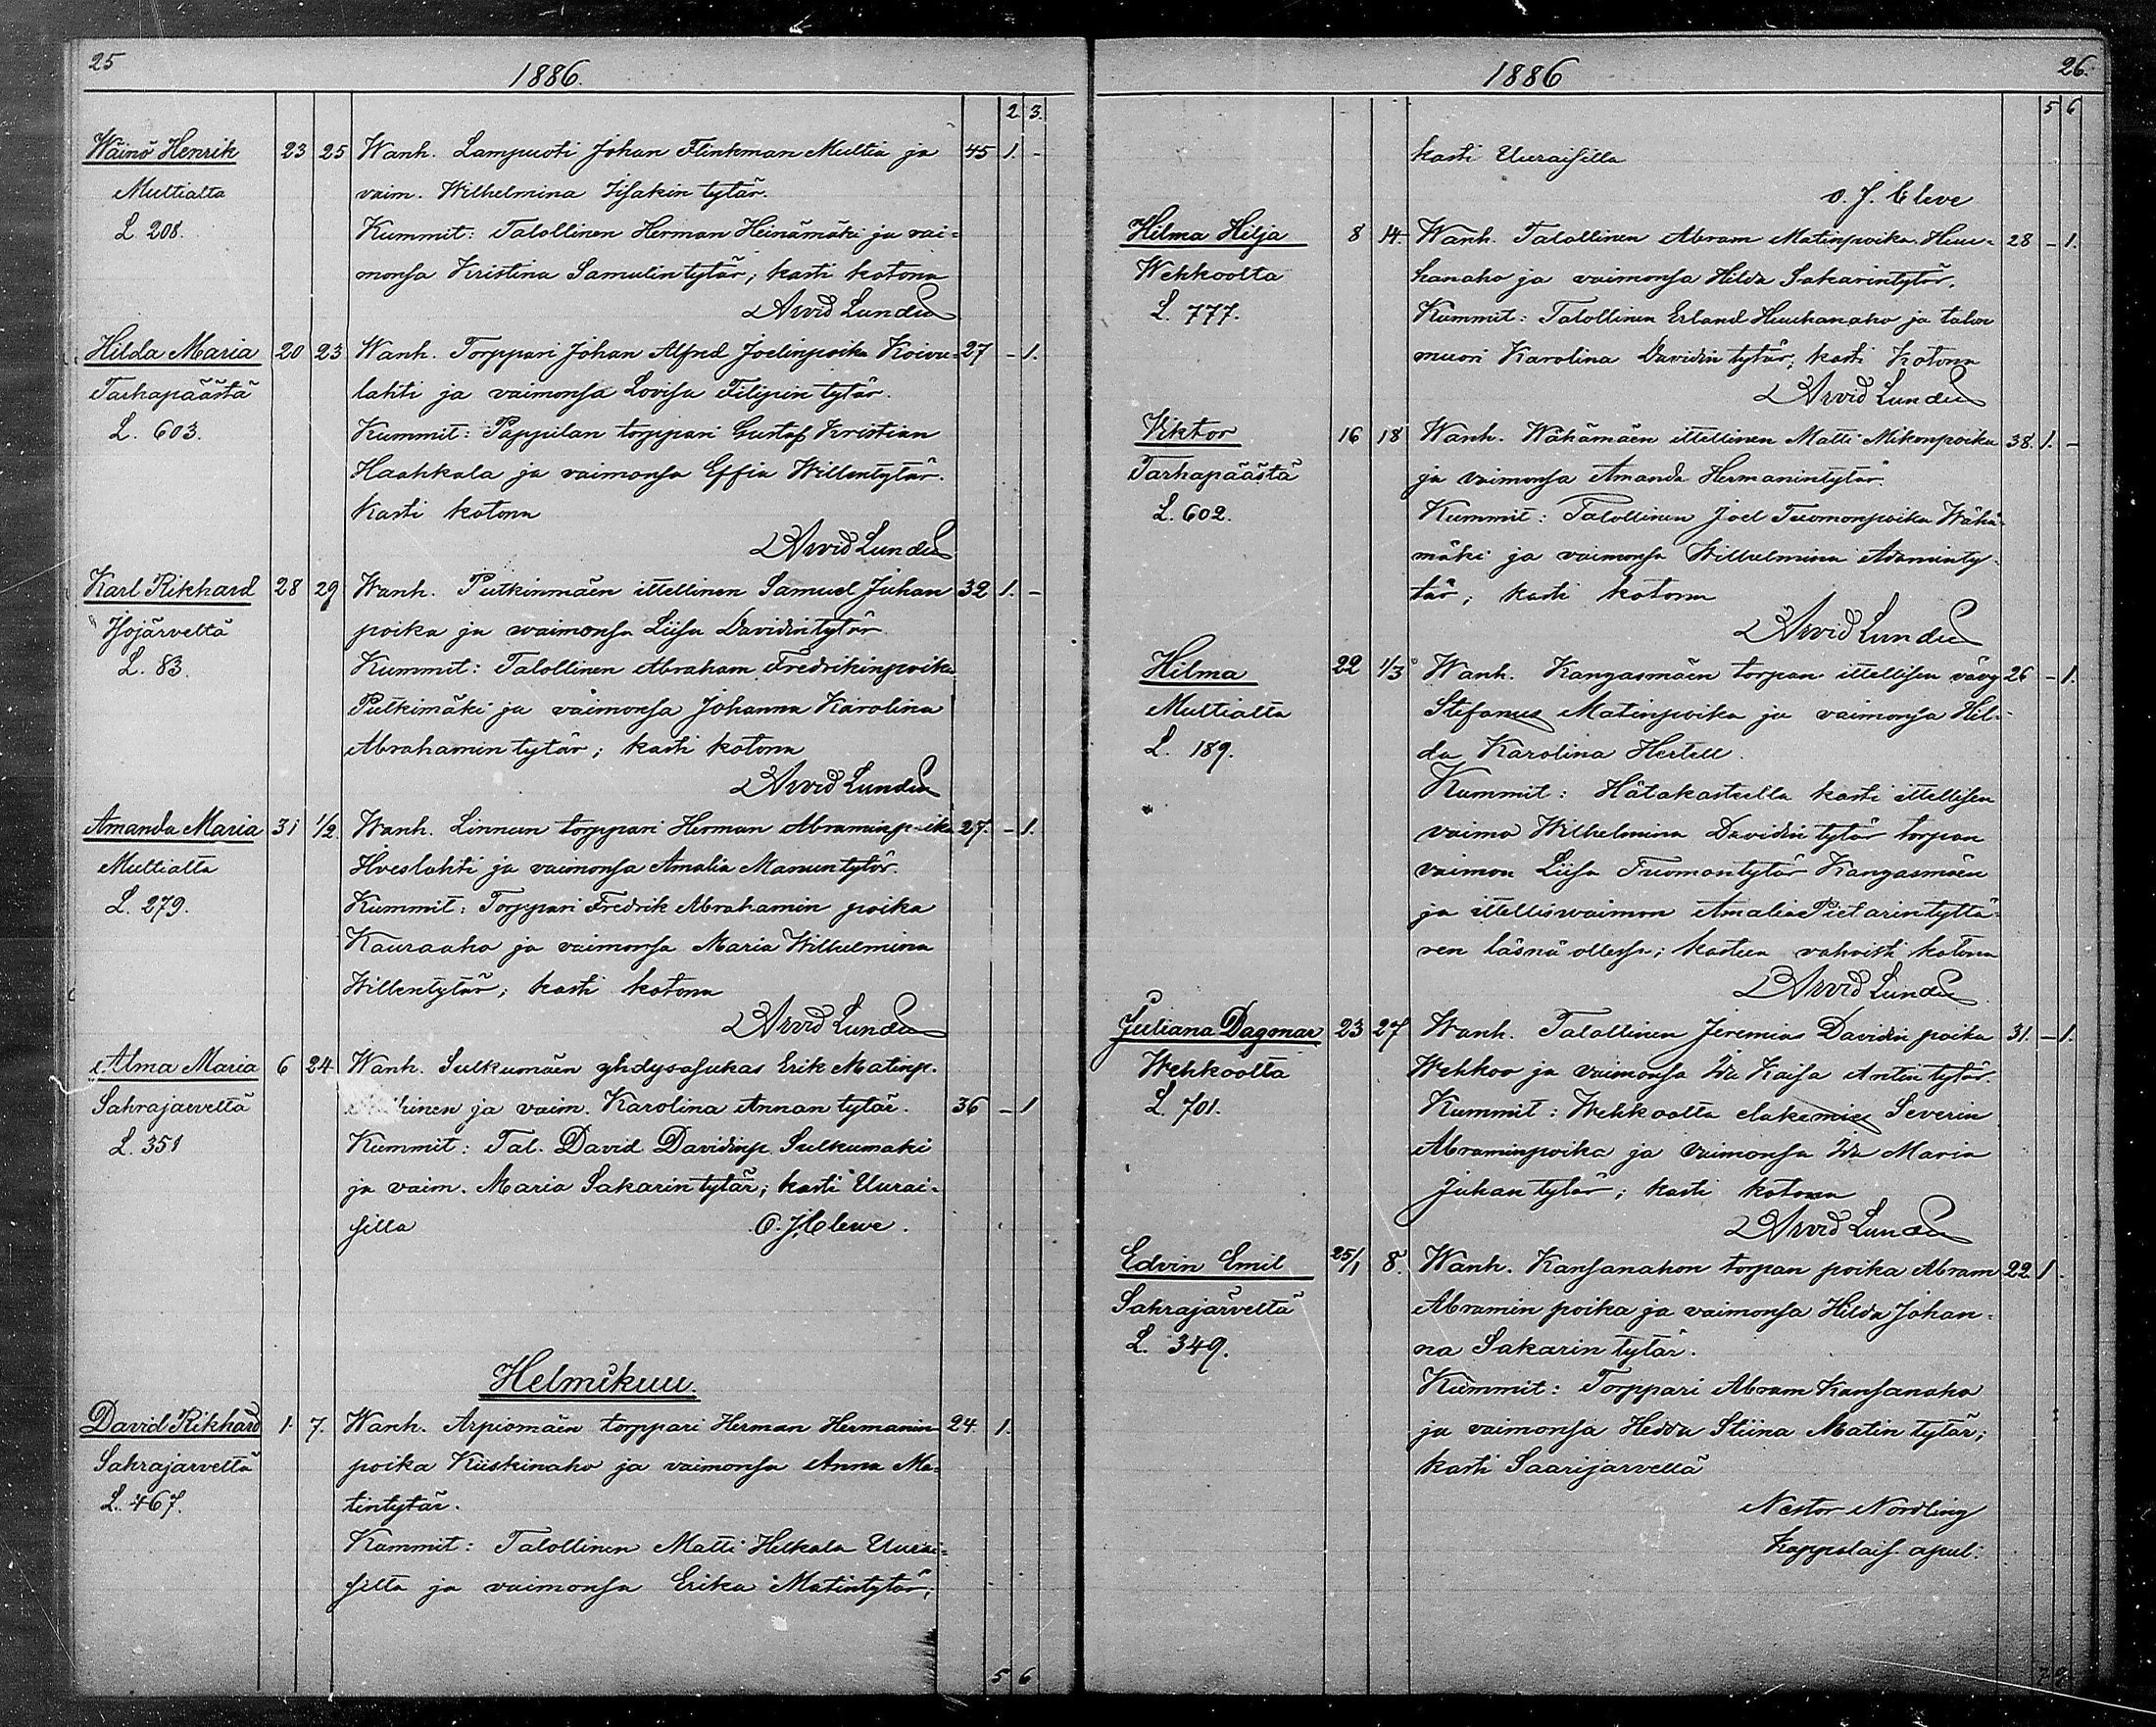 25
1886.
2. 3.
Wäinö Henrik 23 25 Wanh. Lampuoti Johan Flinkman Multia ja 45 1. -
Multialta vaim. Wilhelmina Iisakin tytär.
L. 208. Kummit: Talollinen Herman Heinämäki ja vai-
monsa Kristina Samulin tytär; kasti kotona
Arvid Lunden
Hilda Maria 20 23 Wanh. Torppari Johan Alfred Joelinpoika Koivu- 27 - 1.
Tarhapäästä lahti ja vaimonsa Lovisa Filipin tytär.
L. 603. Kummit: Pappilan torppari Gustaf Kristian
Haahkala ja vaimonsa Effia Willentytär.
Kasti kotona
Arvid Lunden
Karl Rikhard 28 29 Wanh. Putkinmäen ittellinen Samuel Juhan 32 1. -
Isojärveltä poika ja waimonsa Liisa Davidintytär
L. 83. Kummit: Talollinen Abraham Fredrikinpoika
Putkimäki ja vaimonsa Johanna Karolina
Abrahamin tytär; kasti kotona
Arvid Lunden
Amanda Maria 31 1/2. Wanh. Linnan torppari Herman Abraminpoika 27. - 1.
Multialta Hveslahti ja vaimonsa Amalia Manuntytär.
L. 279. Kummit: Torppari Fredrik Abrahamin poika
Kauraaho ja vaimonsa Maria Wilhelmina
Willentytär; kasti kotona
Arvid Lunden
Alma Maria 6 24 Wanh. Sulkumäen yhdysasukas Erik Matinp.
Sahrajarveltä ja vaim. Karolina Annan tytär. 36 - 1
L. 351 Kummit: Tal. David Davidinp. Sulkumaki
ja vaim. Maria Sakarin tytär; kasti Uurai-
silla O. J. Cleve.
Helmikuu.
David Rikhard 1. 7. Wanh. Arpiomäen torppari Herman Hermanin 24. 1.
Sahrajarveltä poika Kiiskinaho ja vaimonsa Anna Ma-
L. 467. tintytär.
Kummit: Talollinen Matti Hilkala Uurai-
silta ja vaimonsa Erika Matintytär;
5 6
1886
26.
5 6
kasti Uuraisilla
O. J. Cleve
Hilma Hilja 8 14. Wanh. Talollinen Abram Matinpoika Huu- 28 - 1.
Wehkoolta hanaho ja vaimonsa Hilda Sakarintytär.
L. 777. Kummit: Talollinen Erland Huuhanaho ja talon
muori Karolina Davidin tytär; kasti kotona
Arvid Lundén
Viktor 16 18 Wanh. Wähämäen ittellinen Matti Mikonpoika 38. 1. -
Tarhapäästä ja vaimonsa Amanda Hermanintytär.
L. 602. Kummit: Talollinen Joel Tuomonpoika Wähä-
mäki ja vaimonsa Wilhelmina Adaminty-
tär; kasti kotona
Arvid Lundén
Hilma 22 1/3 Wanh. Kangasmäen torpan ittellisen vävy 26 - 1.
Multialta Stefanus Matinpoika ja vaimonsa Hil-
L. 189. da Karolina Hertell.
Kummit: Hätakasteella kasti ittellisen
vaimo Wilhelmina Davidin tytär torpan
vaimon Liisa Tuomontytär Kangasmäen
ja ittelliswaimon Amalia Pietarintyttä-
ren läsnä ollessa; kasteen vahvisti kotona
Arvid Lundén
Juliana Dagmar 23 27 Wanh. Talollinen Jeremias Davidin poika 31. - 1.
Wehkoolta Wehkoo ja vaimonsa Ida Kaisa Antin tytär.
L. 701. Kummit: Wehkoolta elakemies Severin
Abraminpoika ja vaimonsa Ida Maria
Juhan tytär; kasti kotona
Arvid Lundén
Edvin Emil 25/1 8. Wanh. Kansanahon torpan poika Abram 22 1.
Sahrajärveltä Abramin poika ja vaimonsa Hilda Johan-
L. 349. na Sakarin tytär.
Kummit: Torppari Abram Kansanaho
ja vaimonsa Hedda Stiina Matin tytär;
kasti Saarijarvella
Nestor Nordling
Kappalais. apul.